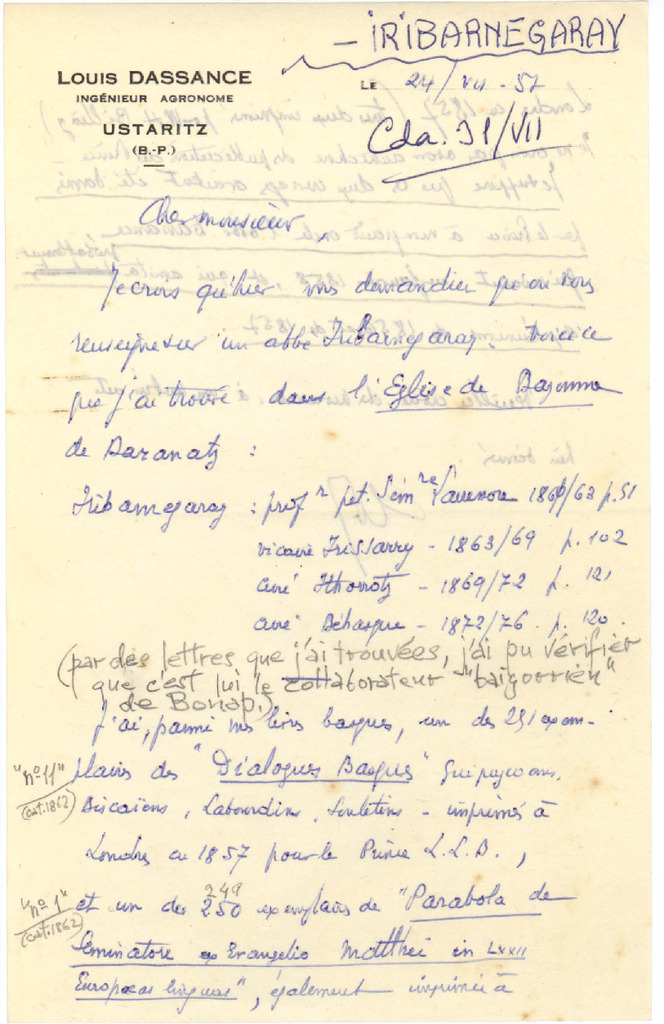 - IRIBARNEGARAY
LOUIS DASSANCE
INGÉNIEUR AGRONOME
USTARITZ
(B.-P.)
LE 24/VII-57
Cda. 31/VII
Cher monsieur,
Je crois qu'hier vous demandiez qu'on vous
renseigne sur un abbé Iribarnegaray. Voici ce
que j'ai trouvé dans l'Eglise de Bayonne
de Daranatz :
Iribarnegaray : profr pet. Semre Larressore 186 /63 p. 51
vicaire Irissarry - 1863/69 p. 102
curé Ithorrotz - 1869/72 p. 121
curé Béhasque - 1872/76 - p. 120.
(par des lettres que j'ai trouvées, j'ai pu vérifier
que c'est lui le collaborateur "baigorrien"
de Bonap.)
J'ai, parmi mes livres basques, un des 251 exem-
plaires des "Dialogues Basques" Guipuzcoans,
Biscaïens, Labourdins, Souletins - imprimés à
Londres en 1857 pour le Prince L.L.B.,
"nº 11"
(cat. 1862)
et un des 250 exemplaires de "Parabola de
249
"nº 1"
(cat. 1862)
Seminatore ex Evangelio Matthei in LXXII
Europaeas linguas", également imprimée à